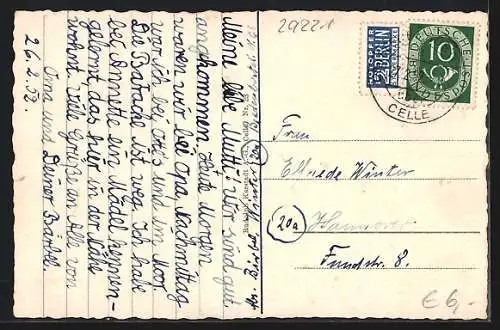 Meine liebe Mutti! Wir sind gut
angekommen. Heute Morgen
waren wir bei Opa, Nachmittag
war ich bei Otto's und im Moor.
Die Baracke ist weg. Ich habe
bei Annette ein Mädel kennen-
gelernt, das hier in der Nähe
wohnt. Viele Grüße an Alle von
Oma und Deiner Bärbel.
26.2.52.
29222 1
NOTOPFER
2 BERLIN
STEUERMARKE
DEUTSCHE BUNDESPOST
10
CELLE
Frau
Winter
20a Hannover
8.
€ 6,-